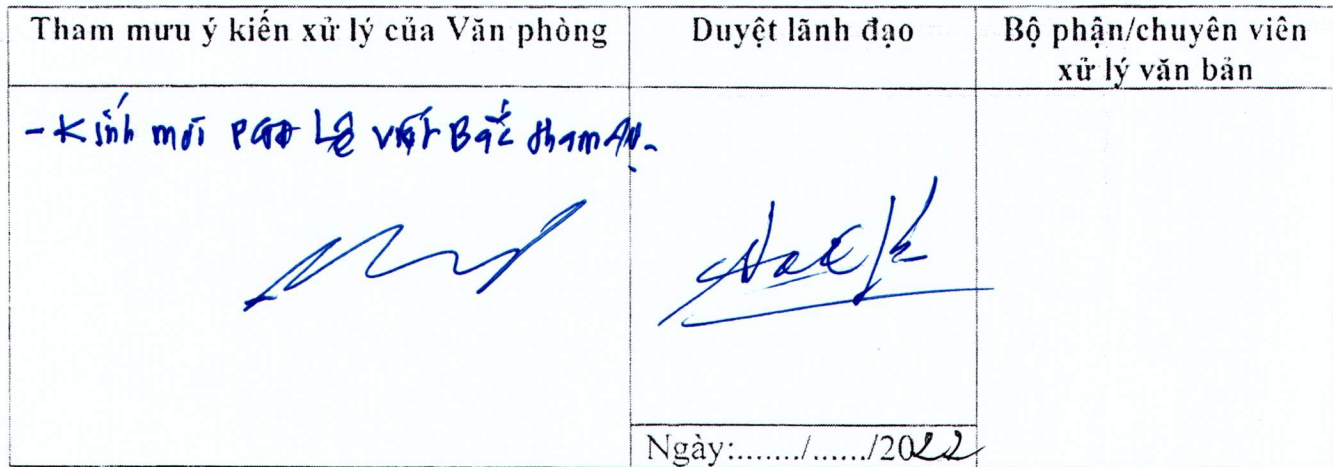 Tham mưu ý kiến xử lý của Văn phòng
Duyệt lãnh đạo
Bộ phận/chuyên viên
xử lý văn bản
- Kính mời PGĐ Lê Viết Bắc tham dự.
Ngày:....../....../2022